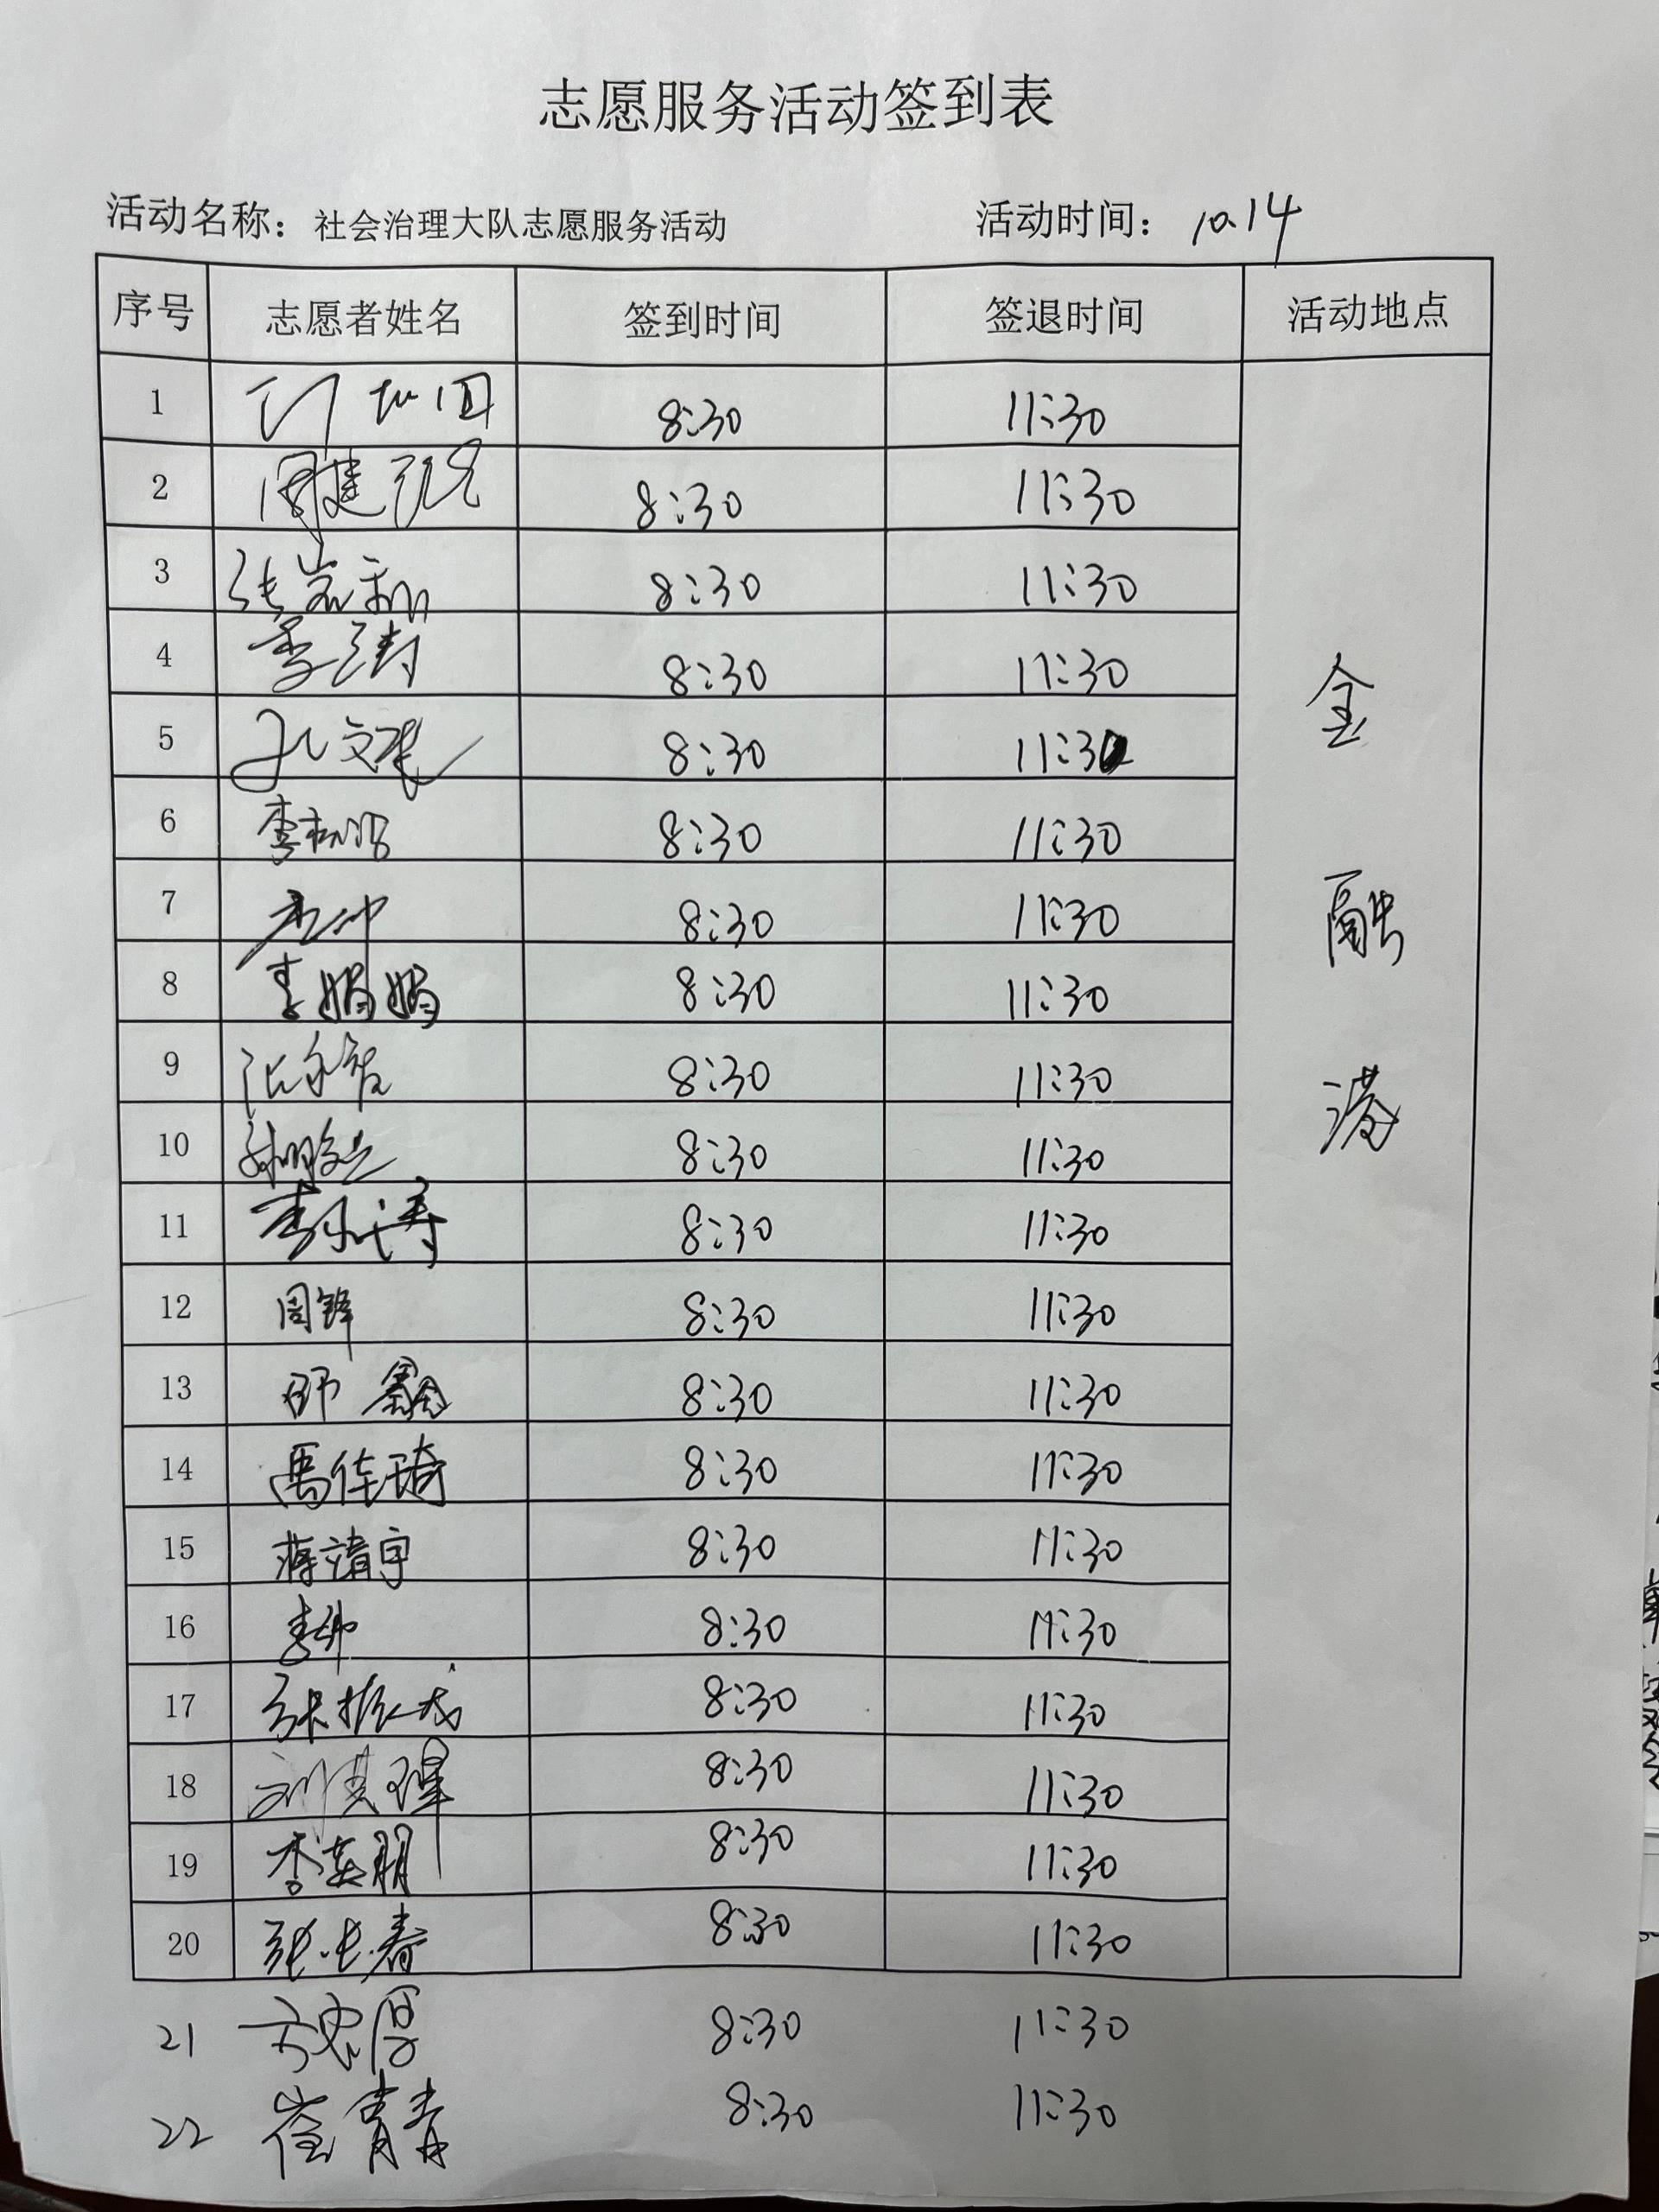 志愿服务活动签到表
活动名称：社会治理大队志愿服务活动 活动时间：10.14
序号 志愿者姓名 签到时间 签退时间 活动地点
1 8:30 11:30
2 8:30 11:30
3 8:30 11:30
4 李涛 8:30 11:30
5 8:30 11:30
6 8:30 11:30
7 8:30 11:30
8 李娟娟 8:30 11:30
9 8:30 11:30
10 8:30 11:30
11 8:30 11:30
12 周锋 8:30 11:30
13 师翻 8:30 11:30
14 禹佳琦 8:30 11:30
15 蒋靖宇 8:30 11:30
16 8:30 11:30
17 8:30 11:30
18 8:30 11:30
19 李英朋 8:30 11:30
20 张长春 8:30 11:30
金融港
21 8:30 11:30
22 崔青青 8:30 11:30